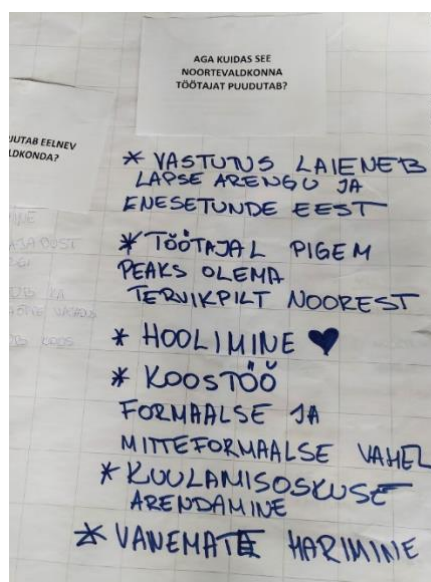 AGA KUIDAS SEE
NOORTEVALDKONNA
TÖÖTAJAT PUUDUTAB?
EELNEV
* VASTUTUS LAIENEB
LAPSE ARENGU JA
ENESETUNDE EEST
* TÖÖTAJAL PIGEM
PEAKS OLEMA
TERVIKPILT NOOREST
* HOOLIMINE ♥
* KOOSTÖÖ
FORMAALSE JA
MITTEFORMAALSE VAHEL
* KUULAMISOSKUSE
ARENDAMINE
* VANEMATE HARIMINE